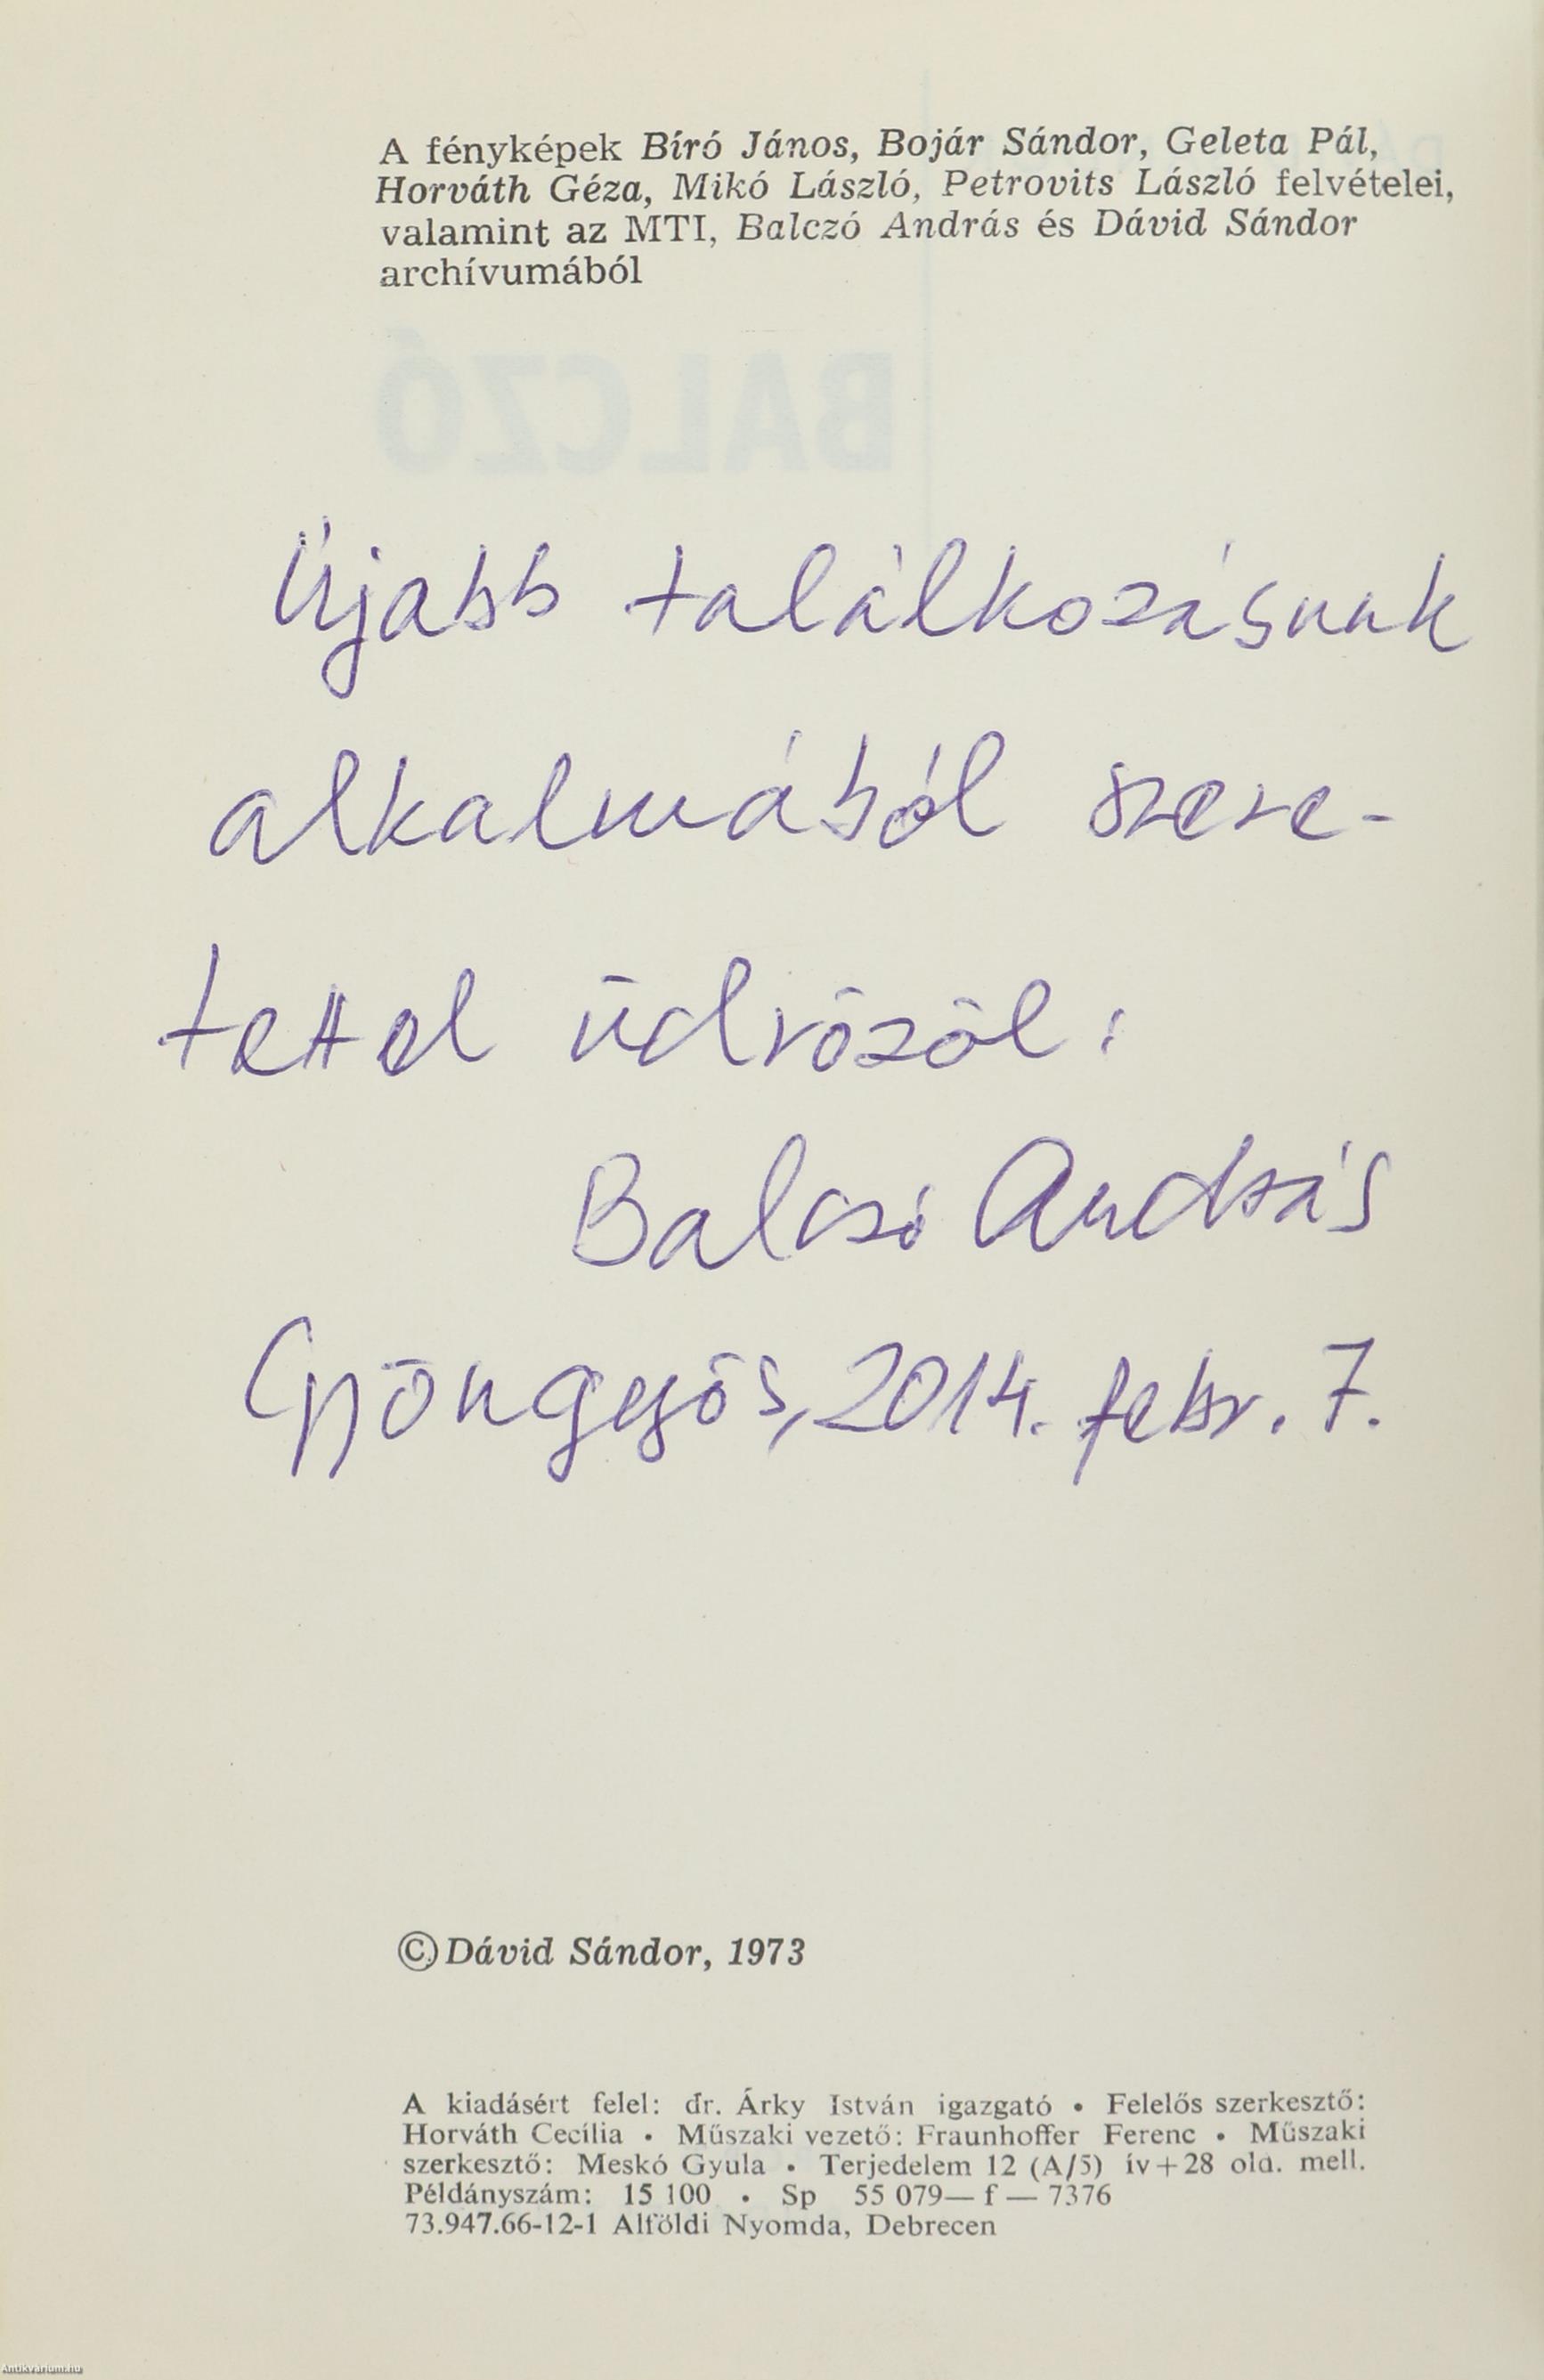 A fényképek Bíró János, Bojár Sándor, Geleta Pál,
Horváth Géza, Mikó László, Petrovits László felvételei,
valamint az MTI, Balczó András és Dávid Sándor
archívumából
BALCZÓ
Újabb találkozásunk
alkalmából szere-
tettel üdvözöl:
Balczó András
Gyöngyös, 2014. febr. 7.
© Dávid Sándor, 1973
A kiadásért felel: dr. Árky István igazgató • Felelős szerkesztő:
Horváth Cecília • Műszaki vezető: Fraunhoffer Ferenc • Műszaki
szerkesztő: Meskó Gyula • Terjedelem 12 (A/5) ív+28 old. mell.
Példányszám: 15 100 • Sp 55 079— f — 7376
73.947.66-12-1 Alföldi Nyomda, Debrecen
Antikvárium.hu